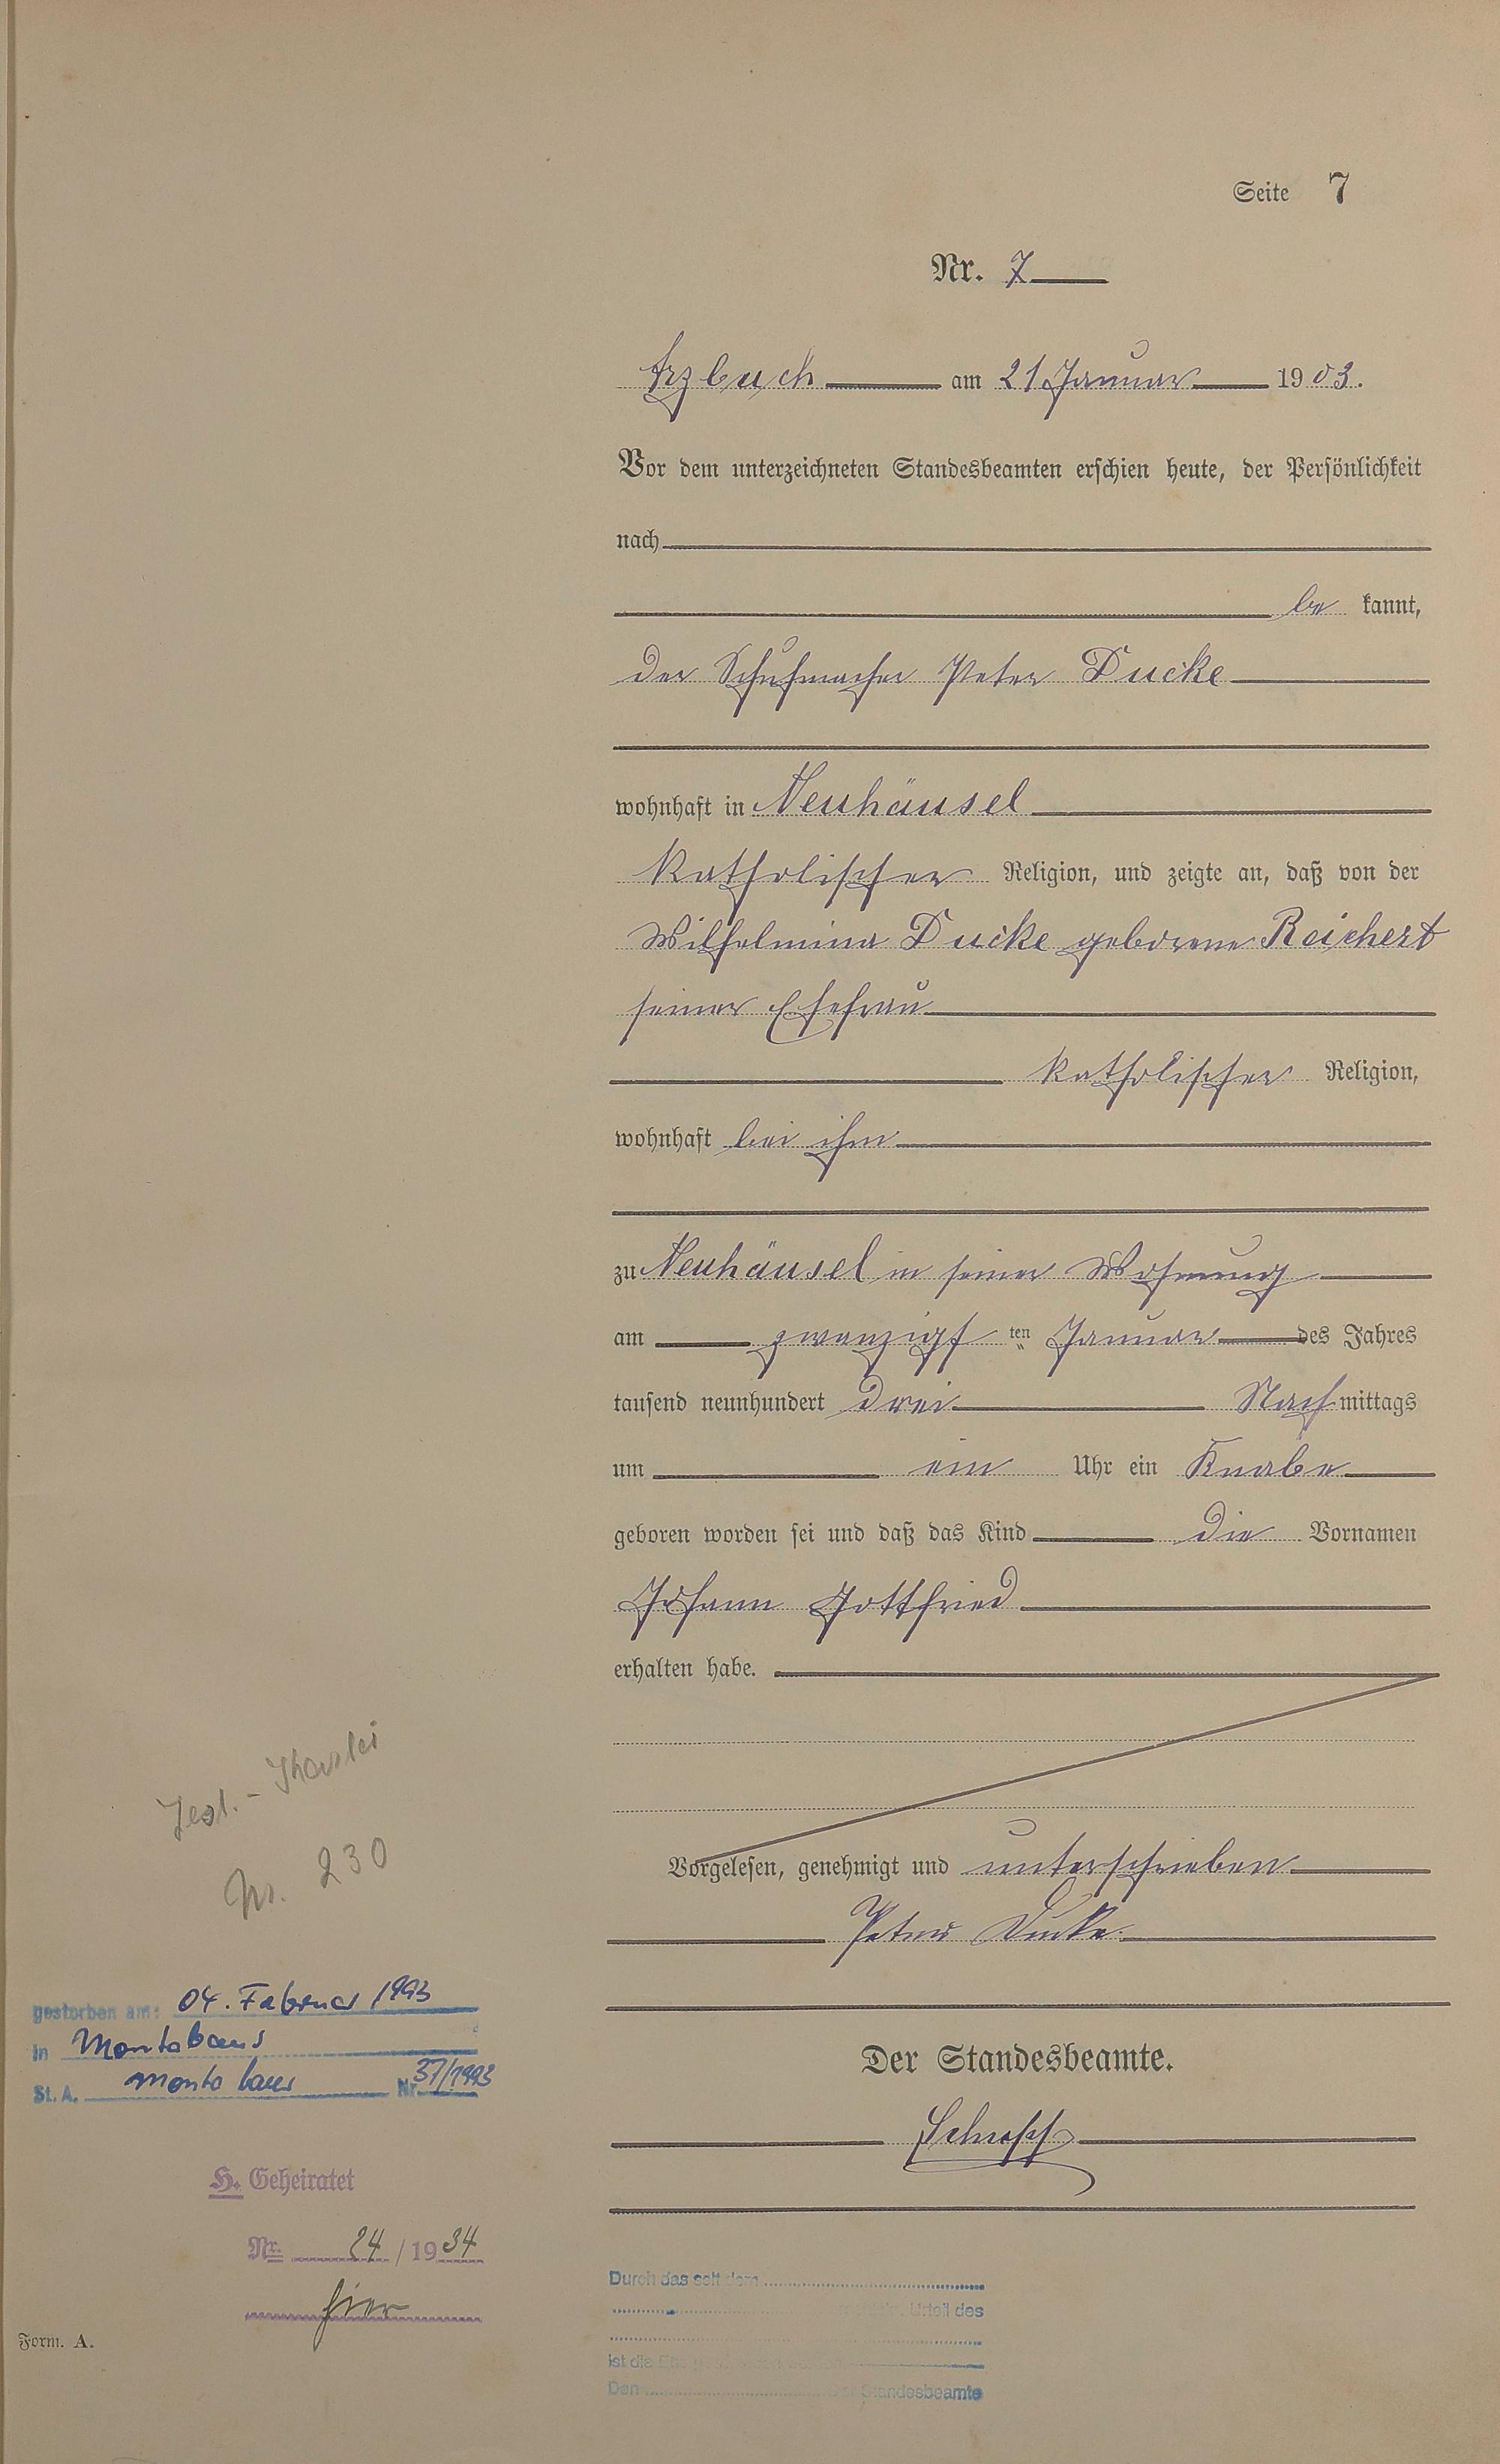 Seite 7
Nr. 7
Arzbach am 21 Januar 1903.
Vor dem unterzeichneten Standesbeamten erschien heute, der Persönlichkeit
nach
be kannt,
der Schuhmacher Peter Ducke
wohnhaft in Neuhäusel
katholischer Religion, und zeigte an, daß von der
Wilhelmina Ducke geborene Reichert
seiner Ehefrau
katholischer Religion,
wohnhaft bei ihm
zu Neuhäusel in seiner Wohnung
am zwanzigsten Januar des Jahres
tausend neunhundert drei Nachmittags
um ein Uhr ein Knabe
geboren worden sei und daß das Kind die Vornamen
Johann Gottfried
erhalten habe.
Vorgelesen, genehmigt und unterschrieben
Peter Ducke.
Der Standesbeamte.
Nr. 230
gestorben am: 04. Februar 1993
in Montabaur
St. A. Montabaur Nr. 37/1993
H. Geheiratet
Nr. 24/1934
hier
Form. A.
Durch das seit dem
Urteil des
ist die
Den Standesbeamte